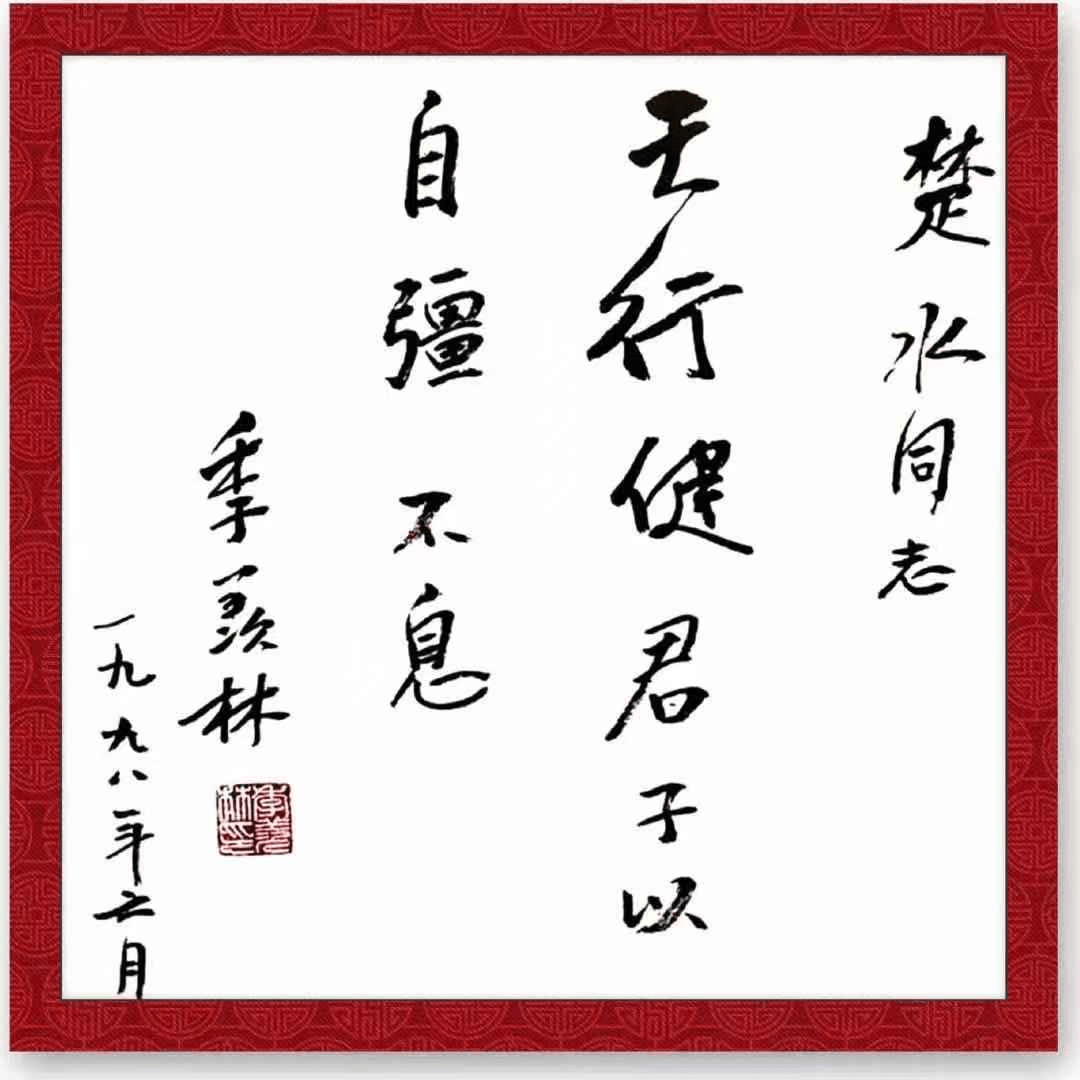 楚水同志
天行健君子以
自彊不息
季羡林
季羡林印
一九九八年六月